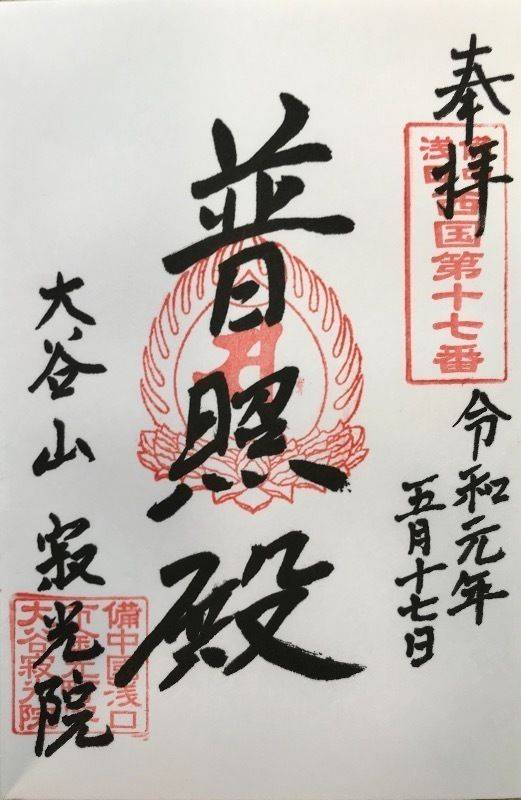 奉拝
備中浅口西国第十七番
令和元年
五月十七日
普照殿
大谷山 寂光院
備中国浅口
大谷寂光院